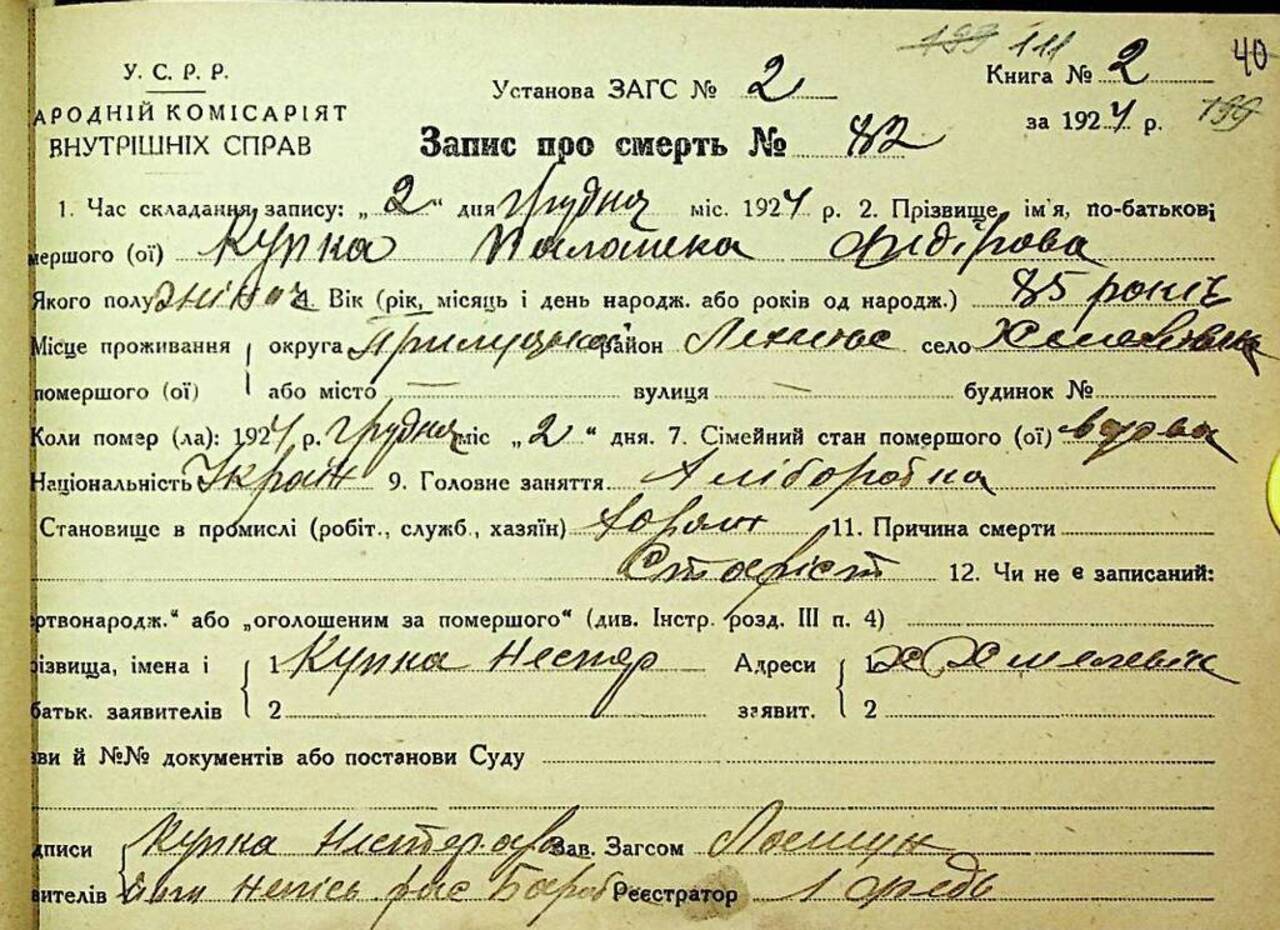 199 111 40
У. С. Р. Р.
Установа ЗАГС № 2 Книга № 2
АРОДНІЙ КОМІСАРІЯТ
за 1924 р. 199
ВНУТРІШНІХ СПРАВ Запис про смерть № 82
1. Час складання запису: „2“ дня грудня міс. 1924 р. 2. Прізвище, ім'я, по-батькові
мершого (ої) Купка Палажка Федірова
Якого полу жіноч 4. Вік (рік, місяць і день народж. або років од народж.) 85 років
Місце проживання округа Прилуцької район село
помершого (ої) або місто — вулиця — будинок №
Коли помер (ла): 1924 р. грудня міс „2“ дня. 7. Сімейний стан помершого (ої) вдова
Національність Україн 9. Головне заняття
Становище в промислі (робіт., служб., хазяїн) 11. Причина смерти
Старіст 12. Чи не є записаний:
ертвонародж.“ або „оголошеним за помершого“ (див. Інстр. розд. III п. 4)
різвища, імена і 1 Купка Нестер Адреси 1 х Хмелевік
батьк. заявителів 2 заявит. 2
зви й №№ документів або постанови Суду
дписи Купка Зав. Загсом
вителів Реєстратор